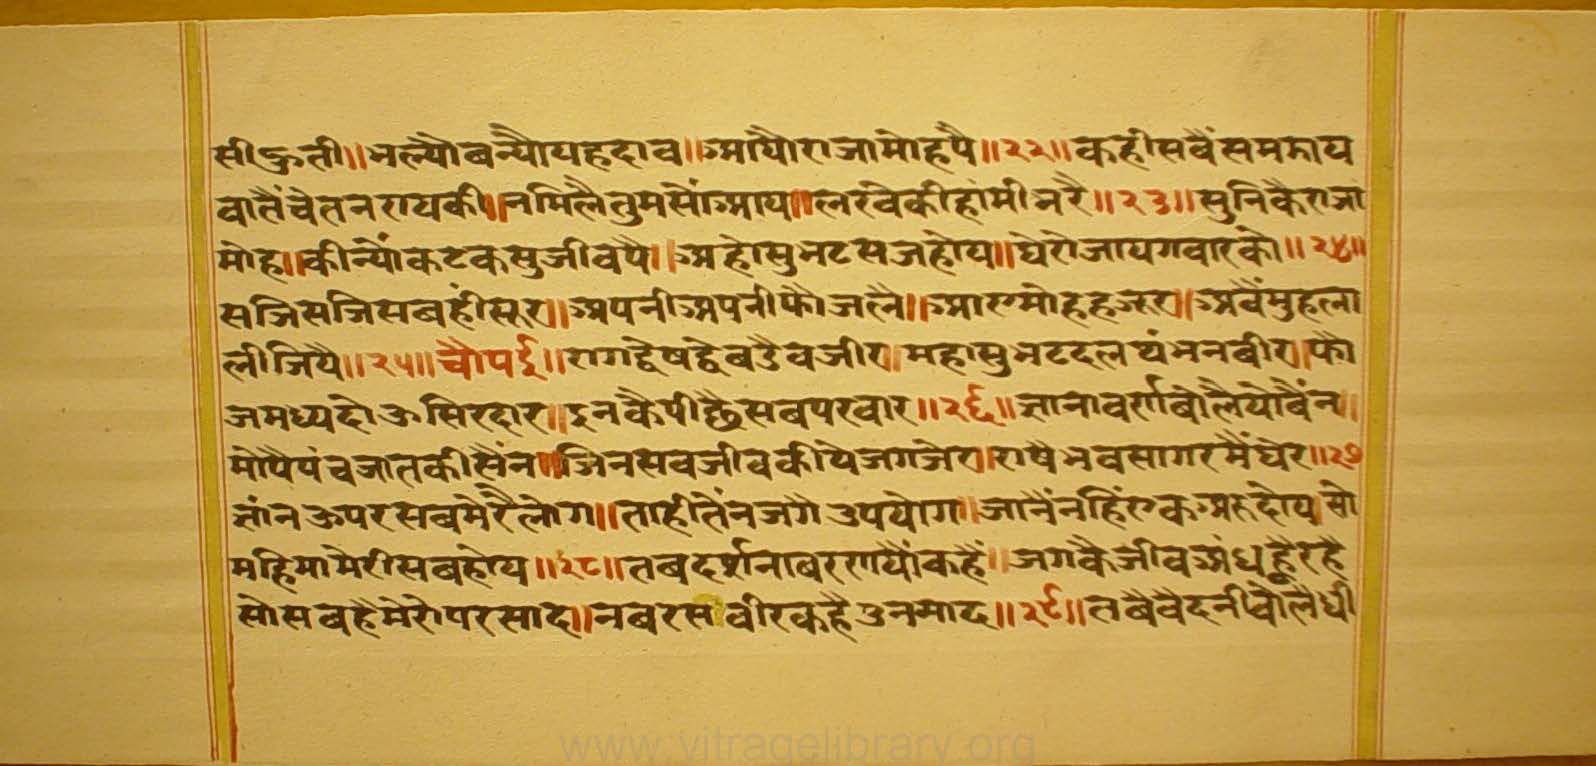 सीऊती॥भल्यौबन्यौयहदाव॥आयौराजामोहपै॥२२॥कहीसबैंसमझाय
वातैंचेतनरायकी॥नमिलैतुमसोंआय॥लरवेकीहांमीभरै॥२३॥सुनिकैराजा
मोह॥कीन्योंकटकसुजीवपै॥अहोसुभटसजहोय॥घेरोजायगवारंको॥२४॥
सजिसजिसबहींसूर॥अपनीअपनीफौजलै॥आएमोहहजूर॥अबैंमुहला
लीजियै॥२५॥चौपई॥रागद्वेषद्वेबडेवजीर।महासुभटदलथंभनबीर।फौ
जमध्यदोऊसिरदार॥इनकैपीछैसबपरवार॥२६॥ज्ञानावर्णबोलैयोबैंन॥
मोपैपंचजातकीसैंन॥जिनसवजीवकीयेजगजेर।राषैभवसागरमैंघेर॥२७
ज्ञांनऊपरसबमेरैलोग॥ताहीतैंनजगैउपयोग॥जानैंनहिंएकअरुदोय।सो
महिमामेरीसबहोय॥२८॥तबदर्शनाबरणयौंकहैं॥जगकैजीवअंधह्वैरहै
सोसबहैमेरोपरसाद॥नबरसवीरकहैउनमाद॥२९॥तबैवैदनीबोलैधी
www.vitragelibrary.org